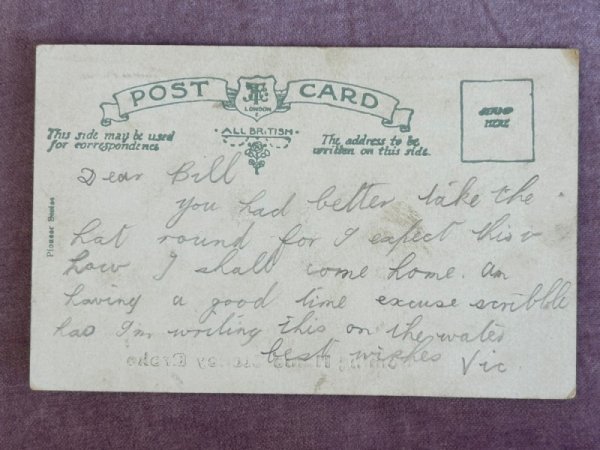 POST CARD
LONDON
ALL BRITISH
STAMP
HERE
This side may be used
for correspondence
The address to be
written on this side.
Pioneer Series
Dear Bill
you had better take the
hat round for I expect this
how I shall come home. am
having a good time excuse scribble
has I'm writing this on the water
best wishes Vic